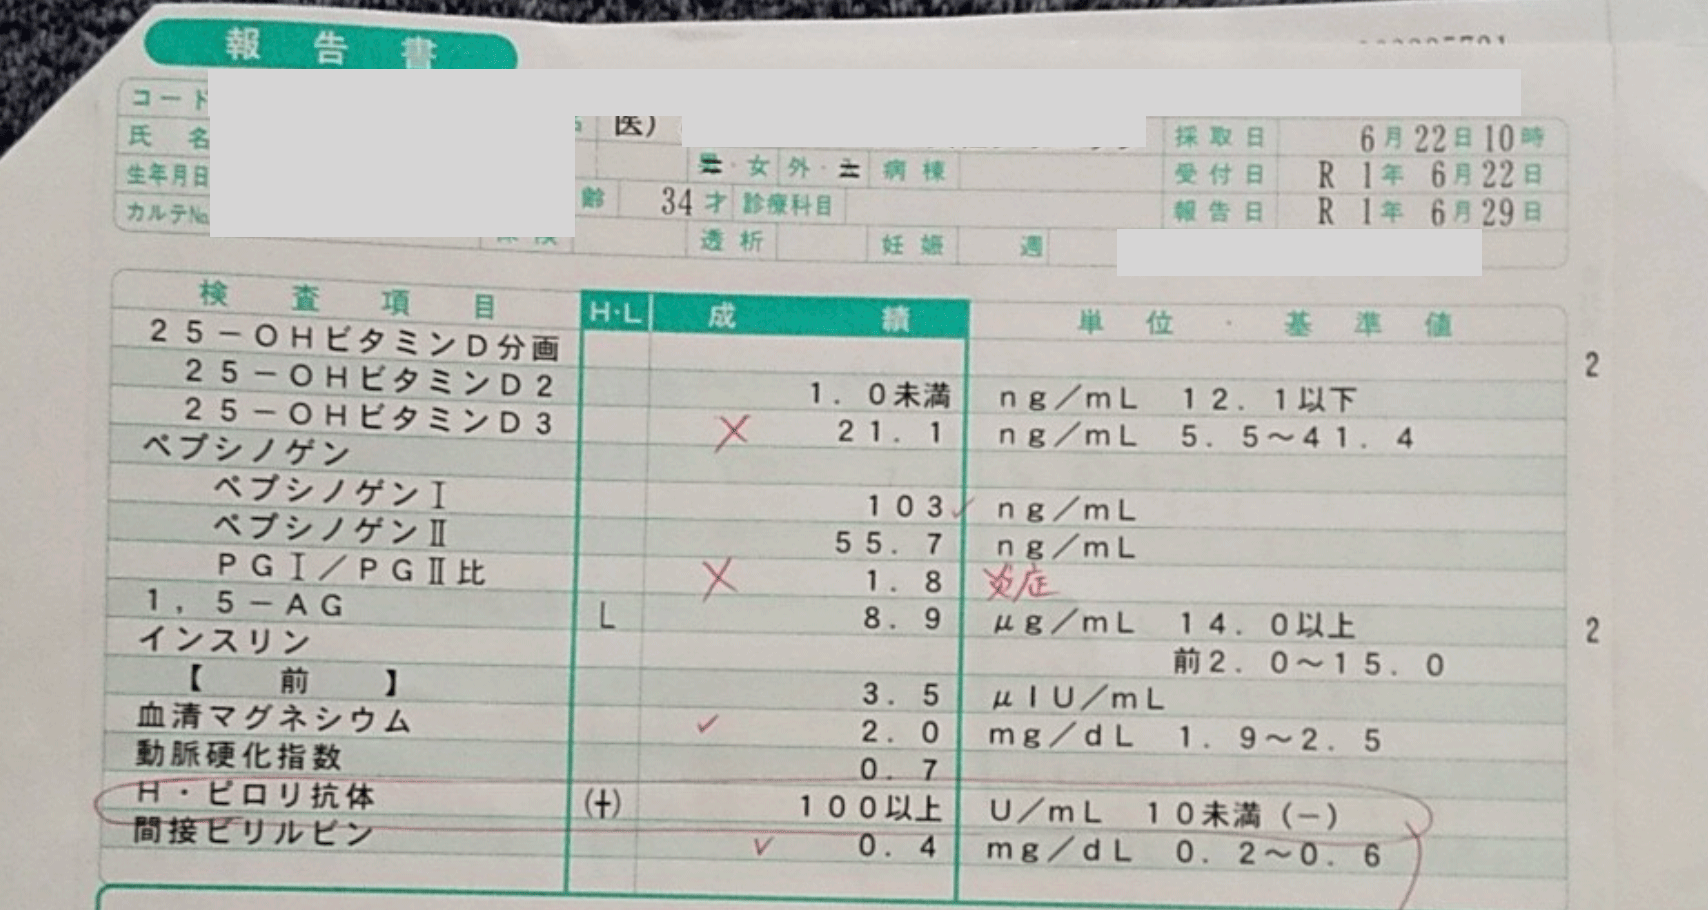 報告書
コード
氏名 医)
採取日 6月22日10時
・女 外・ 病棟
生年月日
受付日 R 1年 6月22日
カルテNo.
齢 34才 診療科目
報告日 R 1年 6月29日
透析 妊娠 週
検査項目 H・L 成績 単位・基準値
25-OHビタミンD分画
2
25-OHビタミンD2 1.0未満 ng/mL 12.1以下
25-OHビタミンD3 21.1 ng/mL 5.5~41.4
ペプシノゲン
ペプシノゲンⅠ 103 ng/mL
ペプシノゲンⅡ 55.7 ng/mL
PGⅠ/PGⅡ比 1.8 炎症
1,5-AG L 8.9 μg/mL 14.0以上
2
インスリン 前2.0~15.0
【 前 】 3.5 μIU/mL
血清マグネシウム 2.0 mg/dL 1.9~2.5
動脈硬化指数 0.7
H・ピロリ抗体 (+) 100以上 U/mL 10未満(-)
間接ビリルビン 0.4 mg/dL 0.2~0.6